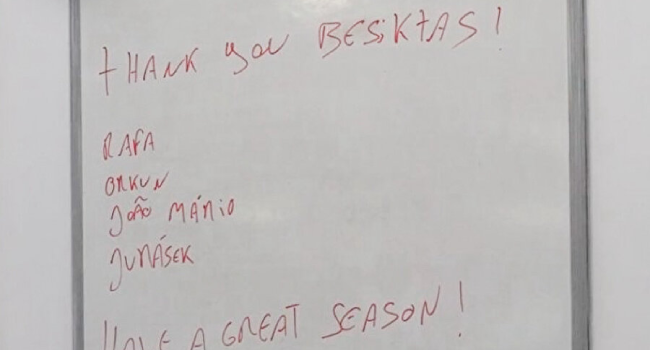 tHANK you BESiKtAS!
RAFA
ORKUN
JOÃO MÁRiO
JURÁSEK
HAVE A GREAT SEASON!